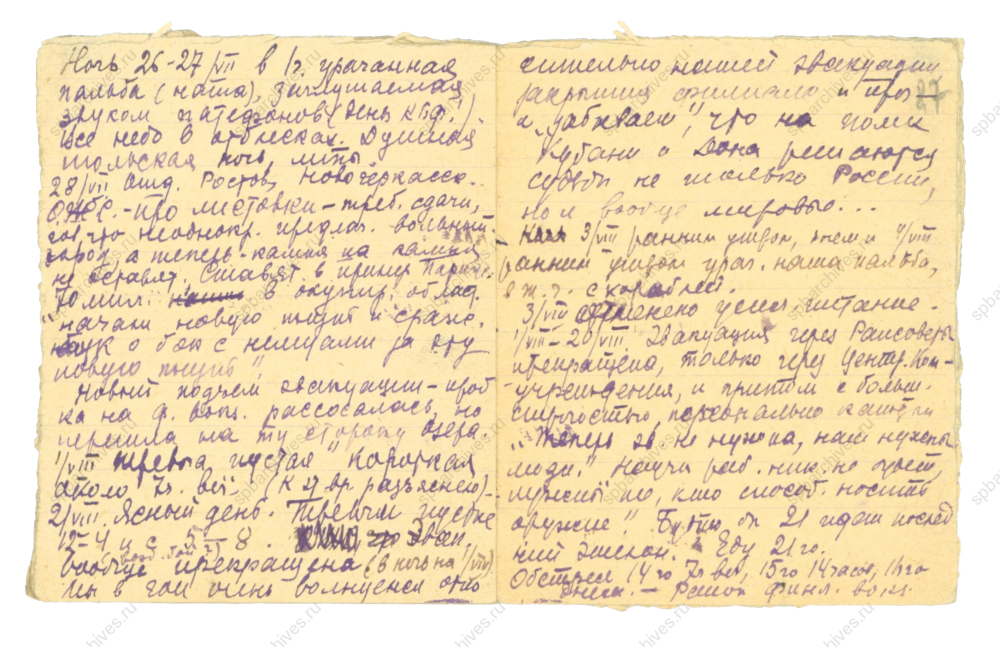 Ночь 26-27/VII в 1ч. ураганная
пальба (наша), заглушаемая
звуком патефонов (День КБФ.)
Все небо в отблесках. Душная
июльская ночь,
28/VII Ост. Ростов, Новочеркасск.
про листовки – треб. сдачи,
что неоднокр. предлаг. вольный
город, а теперь – камня на камня
не оставят. Ставят в пример Париж.
70 мил. в окупир. област.
"начали новую жизнь и сраж.
бок о бок с немцами за эту
новую жизнь"
Новый подъем эвакуации – проб
ка на ф. вокз. рассосалась, но
перешла на ту сторону озера.
1/VIII тревога пустая короткая
около 7ч. веч. (к 27 вр разъяснено)
2/VIII. Ясный день. Тревоги пустые
12-4 и с 5 8. Эвак.
вообще прекращена (в ночь на 1/VIII)
Мы в ГОИ очень волнуемся отно
сительно нашей эвакуации
закрытия филиала и проч
и "забываем", что на полях
Кубани и Дона решаются
судьбы не только России,
но и вообще мировые...
3/VIII ранним утром, затем и 4/VIII
ранним утром ураг. наша пальба,
в т. ч. с кораблей.
3/VIII отменено усил. питание.
1/VIII – 20/VIII. Эвакуация через Райсоветы
прекращена, только через Центр.
учреждения, и притом с больш.
строгостью, персонально
"Теперь эв. не нужна, нам нужны
люди." Научн раб. ник не
нужны те, кто способ. носить
оружие" Будто бы 21 идет послед
ний эшелон. Еду 21го.
Обстрел 14го 7ч веч, 15го 14часов, 16го
днем. – Район Финл. вокз.
27
spbarchives.ru